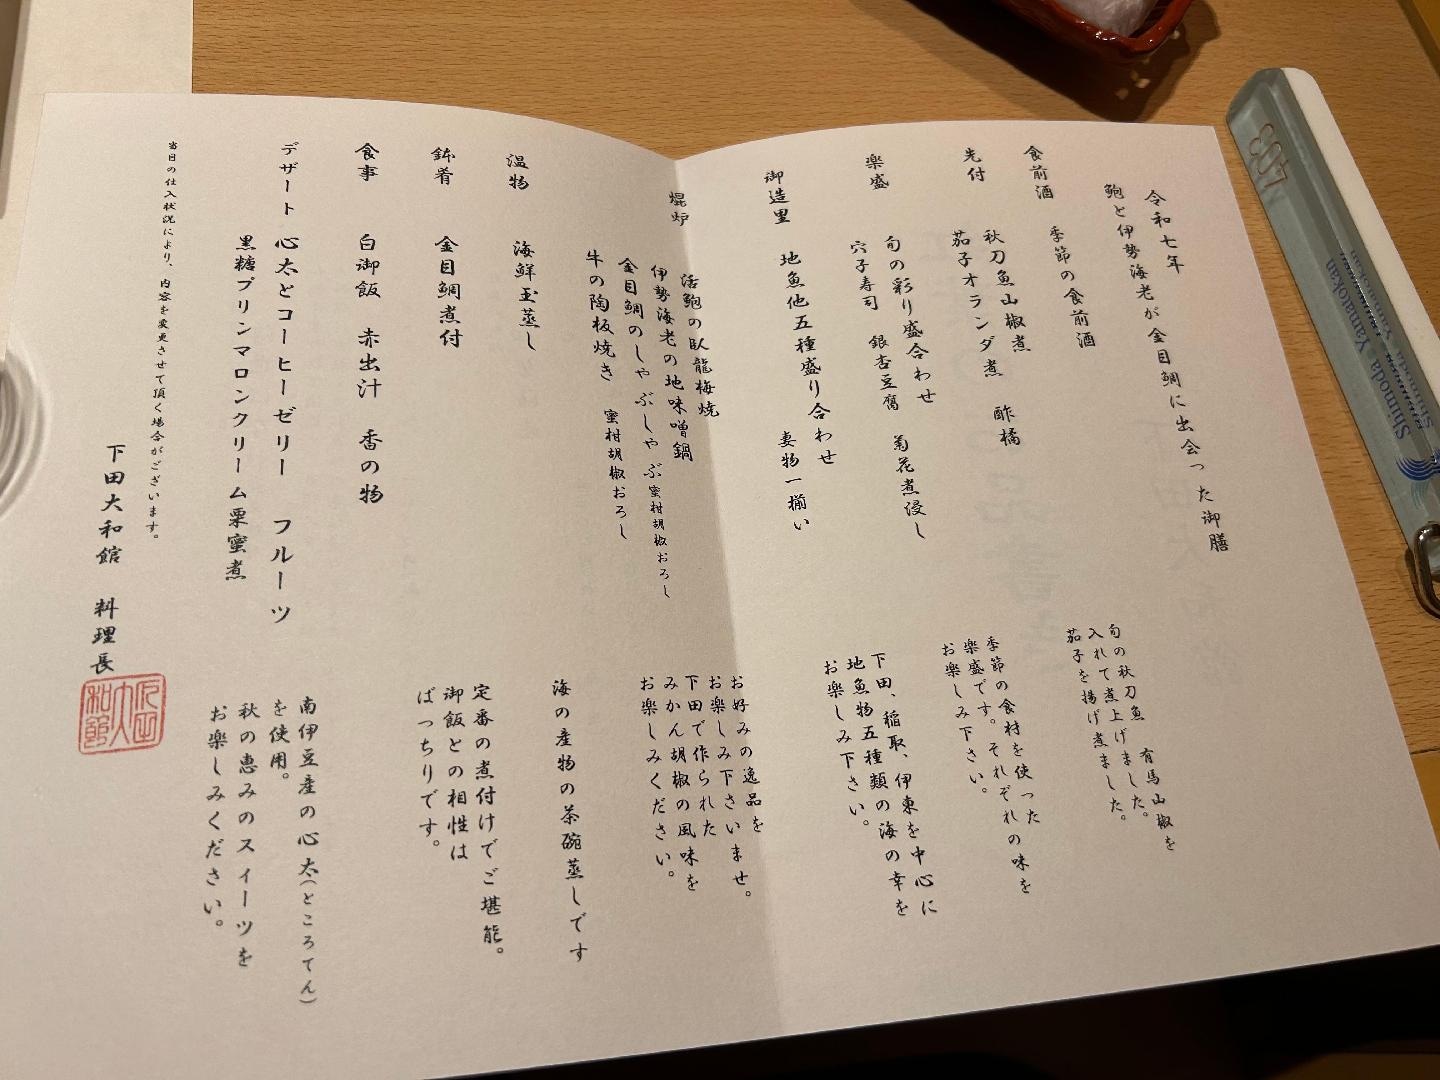 令和七年
鮑と伊勢海老が金目鯛に出会った御膳
食前酒　季節の食前酒
先付　秋刀魚山椒煮　酢橘
茄子オランダ煮
旬の秋刀魚　有馬山椒を
入れて煮上げました。
茄子を揚げ煮ました。
楽盛　旬の彩り盛合わせ　菊花煮浸し
穴子寿司　銀杏豆腐
季節の食材を使った
楽盛です。それぞれの味を
お楽しみ下さい。
御造里　地魚他五種盛り合わせ　妻物一揃い
下田、稲取、伊東を中心に
地魚物五種類の海の幸を
お楽しみ下さい。
焜炉　活鮑の臥龍梅焼
伊勢海老の地味噌鍋
金目鯛のしゃぶしゃぶ　蜜柑胡椒おろし
牛の陶板焼き　蜜柑胡椒おろし
お好みの逸品を
お楽しみ下さいませ。
下田で作られた
みかん胡椒の風味を
お楽しみください。
温物　海鮮玉蒸し
海の産物の茶碗蒸しです
鉢肴　金目鯛煮付
定番の煮付けでご堪能。
御飯との相性は
ばっちりです。
食事　白御飯　赤出汁　香の物
デザート　心太とコーヒーゼリー　フルーツ
黒糖プリンマロンクリーム栗蜜煮
南伊豆産の心太(ところてん)
を使用。
秋の恵みのスイーツを
お楽しみください。
当日の仕入状況により、内容を変更させて頂く場合がございます。
下田大和館　料理長
Shimoda Yamatokan